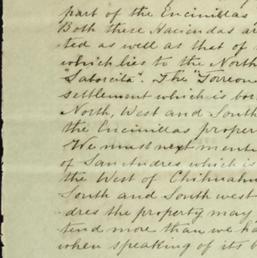 part of the Encinillas
Both these Haciendas ar
ted as well as that of
which lies to the North
"Saborcita". The "Torreon
settlement which is bor
North, West and South
the Encinillas proper
We must next ment
of San Andres which is
the West of Chihuahu
South and South west
dres the property may
tend more than we ha
when speaking of its b